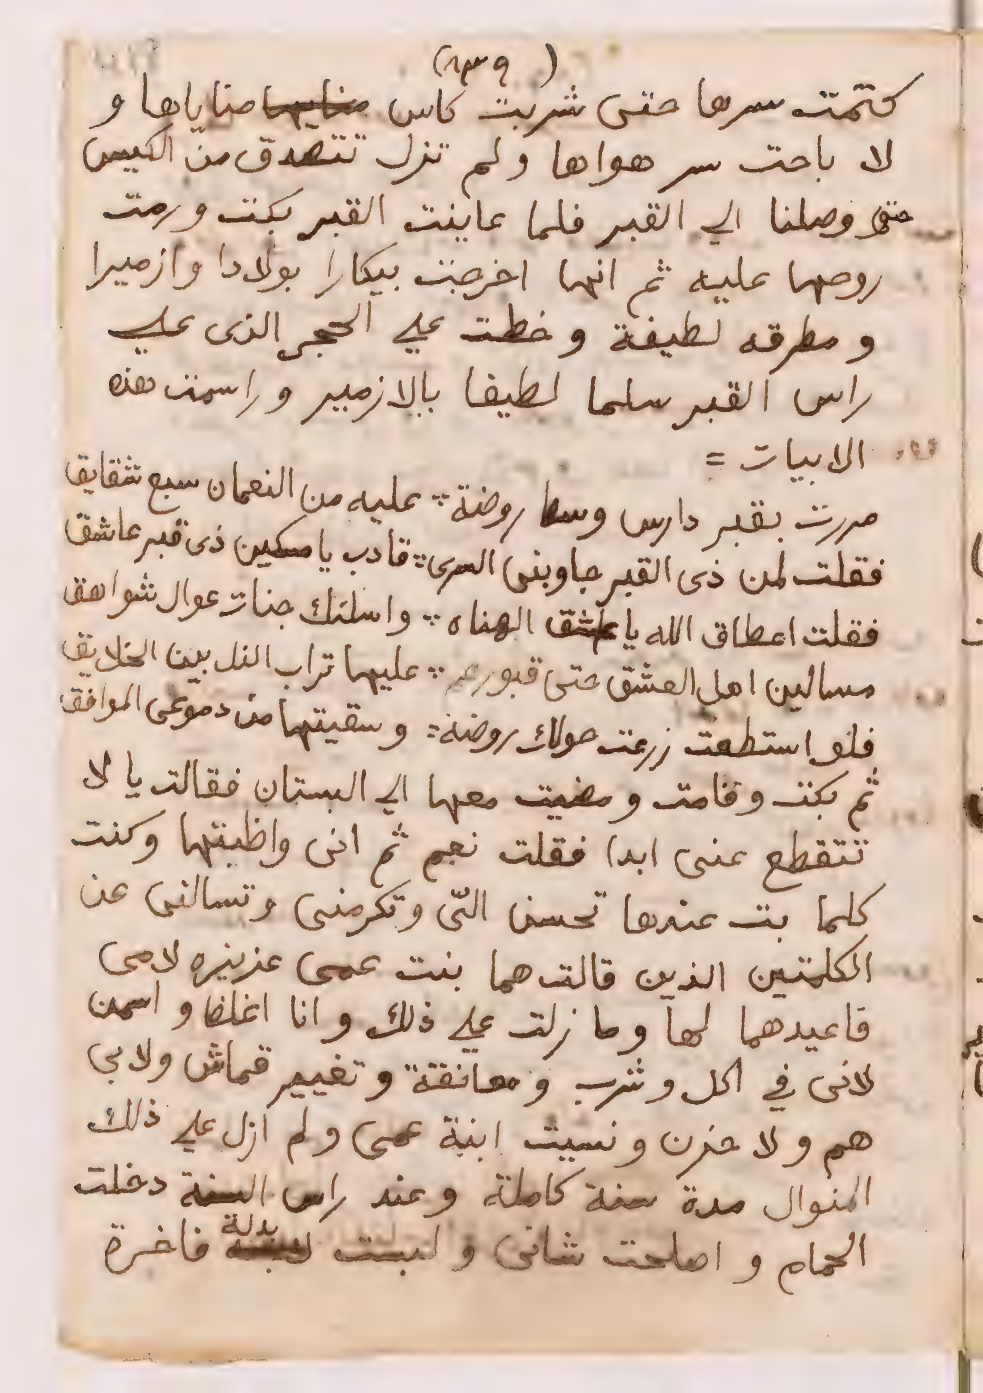 (٨٣٩)
كتمت سرها حتى شربت كاس منايها مناياها و
لا باحت سر هواها ولم تزل تتصدق من الكيس
حتى وصلنا الي القبر فلما عاينت القبر بكت ورمت
روحها عليه ثم انها اخرجت بيكارا بولادا وازميرا
و مطرقه لطيفة و خطت علي الحجر الذى علي
راس القبر سلما لطيفا بالازمير و راسمت هذه
الابيات =
مررت بقبر دارس وسط روضة ∴ عليه من النعمان سبع شقايق
فقلت لمن ذى القبر جاوبنى السرى ∴ قادب يا مسكين ذى قبر عاشق
فقلت اعطاق الله يا عاشق الهناه ∴ واسلنك جنات عوال شواهق
مسالين اهل العشق حتى قبورهم ∴ عليها تراب الذل بين الخلايق
فلو استطعت زرعت حولك روضة = و سقيتها من دموعى الموافق
ثم بكت و قامت و مضيت معها الي البستان فقالت يا لا
تتقطع عنى ابدا فقلت نعم ثم انى واظبتها وكنت
كلما بت عندها تحسن التى وتكرمنى وتسالنى عن
الكلمتين الذين قالت هما بنت عمى عزيزه لامى
قاعيدهما لها و ما زلت علي ذلك و انا اغلظ و اسمن
لانى في اكل و شرب و معانقة و تغيير قماش ولا بى
هم و لا حزن و نسيت ابنة عمى و لم ازل علي ذلك
المنوال مدة سنة كاملة و عند راس السنة دخلت
الحمام و اصلحت شانى و لبست بدلة فاخرة